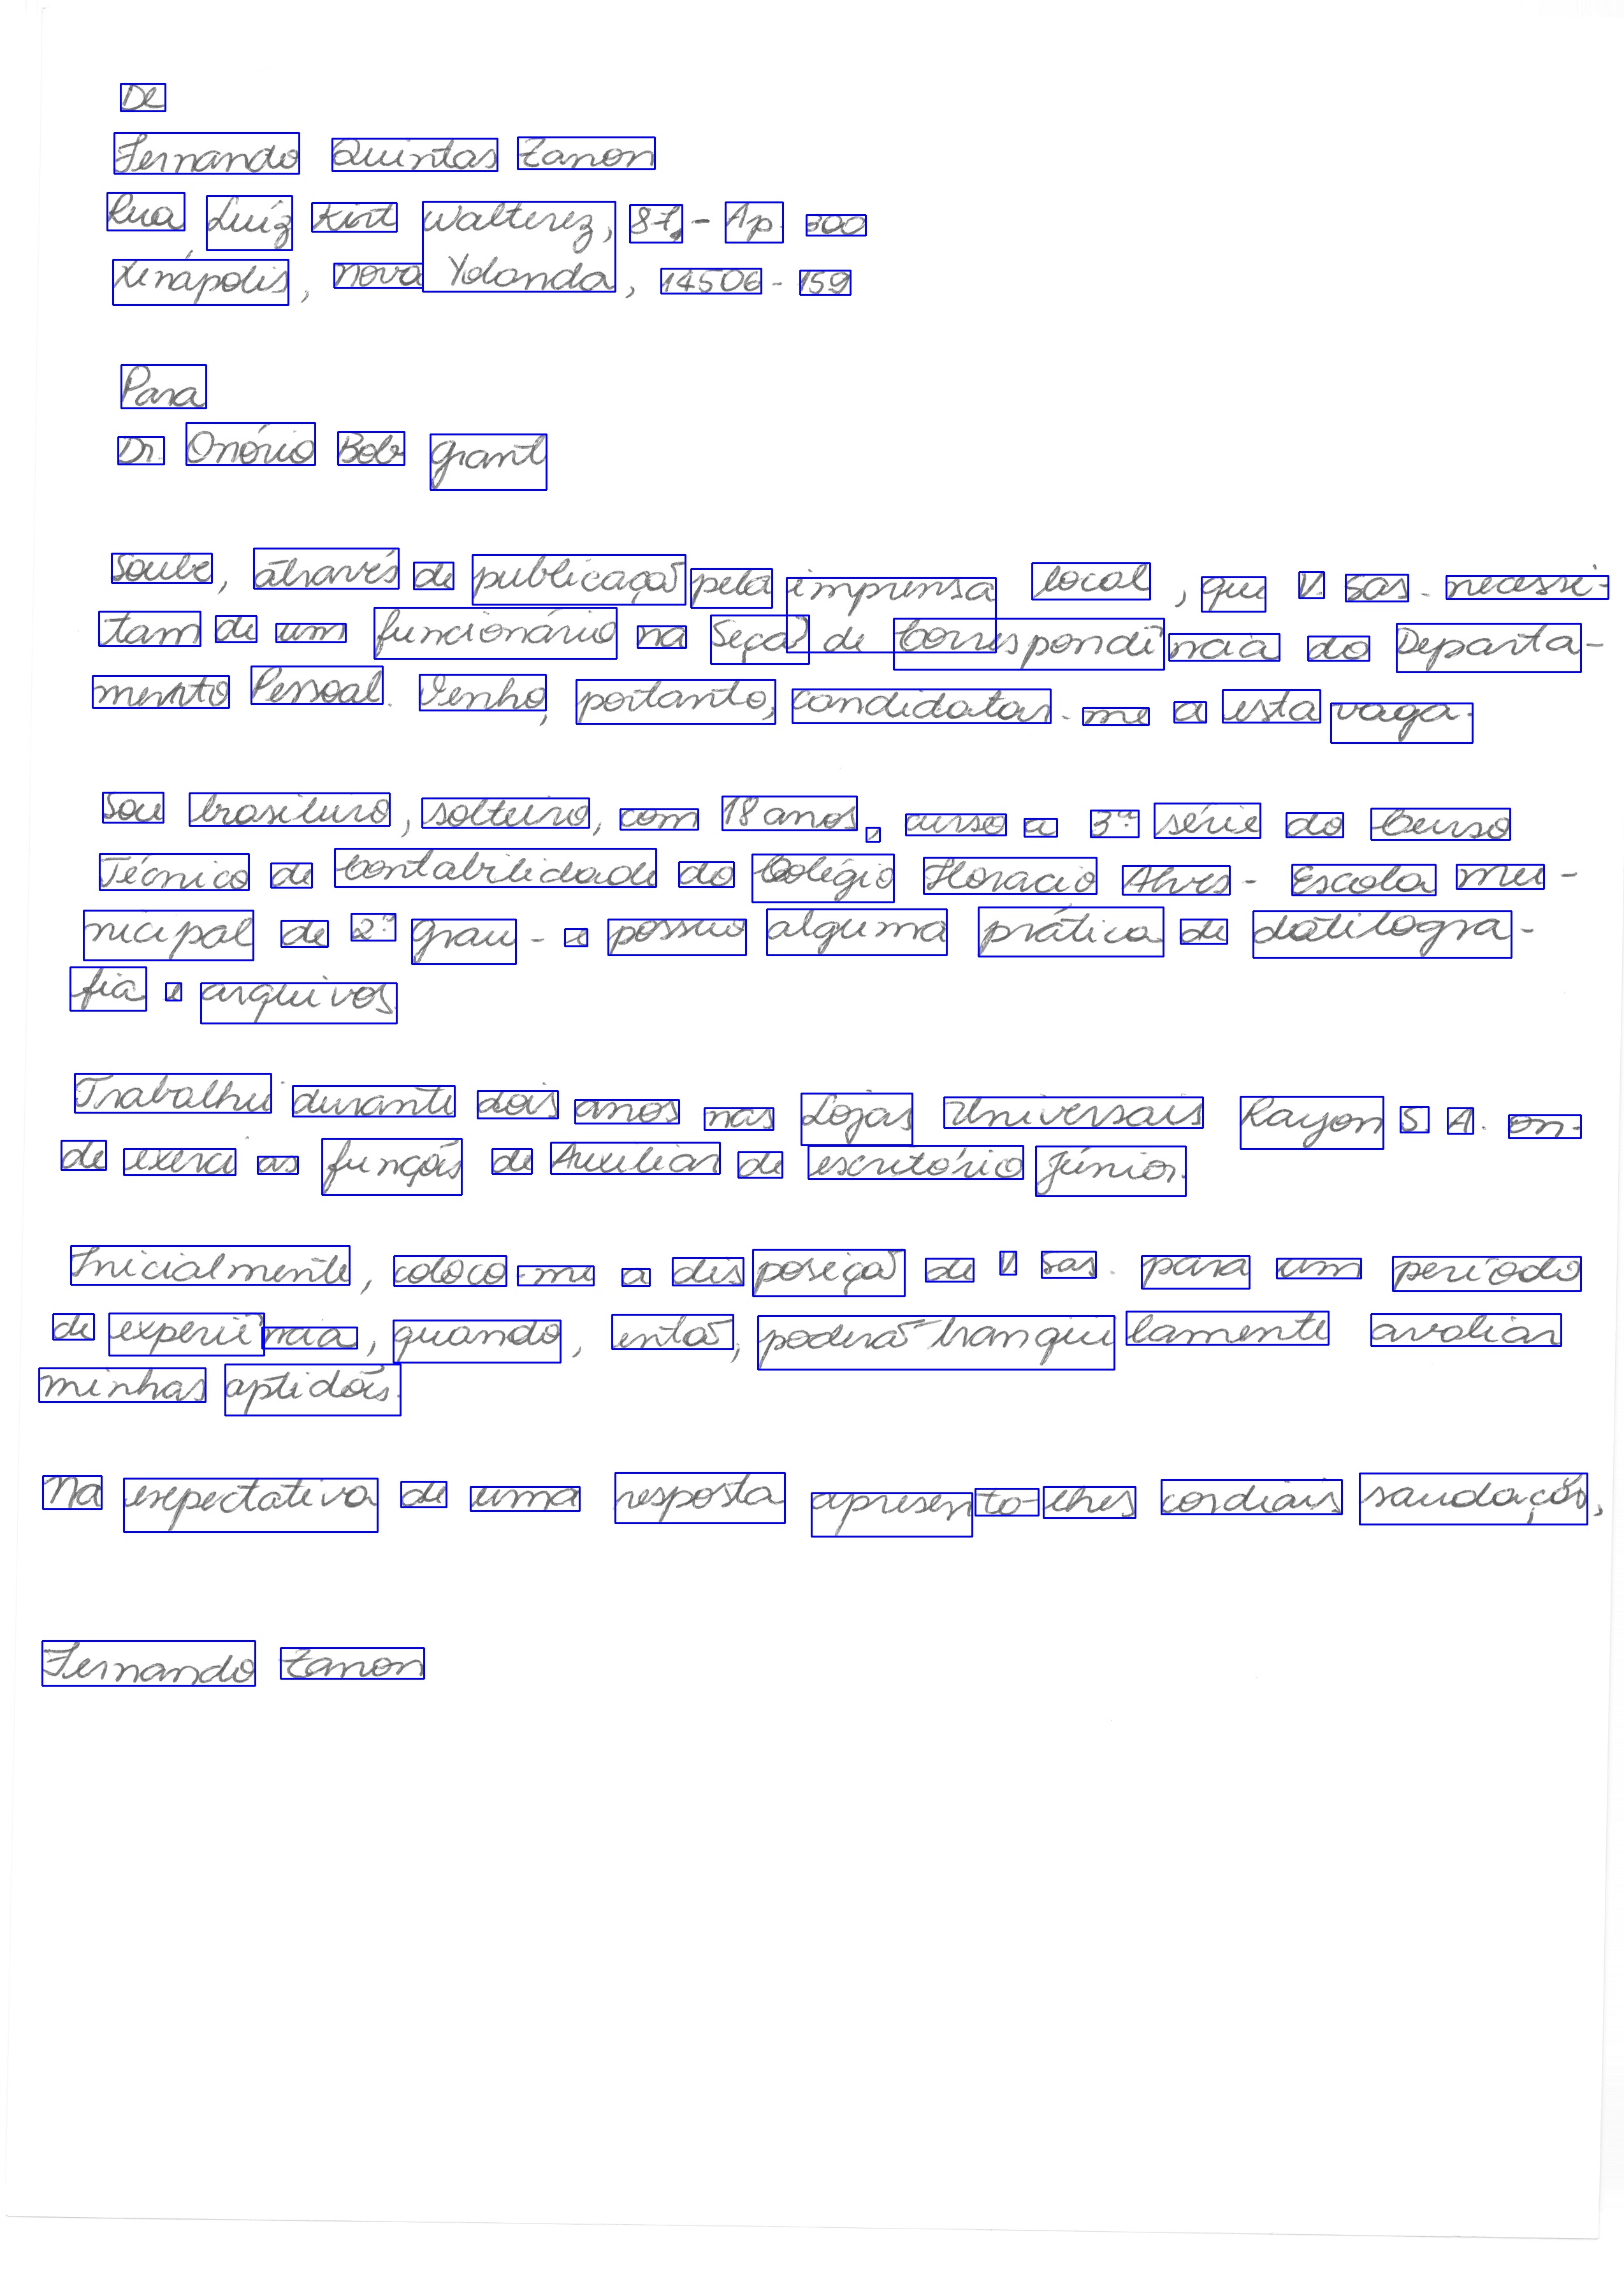 De
Fernando Quintas Zanon
Rua Luíz Kirt Walterez, 87, - Ap. 300
Xenápolis, Nova Yolanda, 14506-159
Para
Dr. Onório Bob Grant
Soube, através de publicação pela imprensa local, que V. Sas. necessi-
tam de um funcionário na Seção de Correspondência do Departa-
mento Pessoal. Venho, portanto, candidatar-me a esta vaga.
Sou brasileiro, solteiro, com 18 anos, curso a 3ª série do Curso
Técnico de Contabilidade do Colégio Horacio Alves - Escola Mu-
nicipal de 2º grau - e possuo alguma prática de datilogra-
fia e arquivos.
Trabalhei durante dois anos nas Lojas Universais Rayon S. A. on-
de exerci as funções de Auxiliar de escritório Júnior.
Inicialmente, coloco-me a disposição de V. Sas. para um período
de experiência, quando, então, poderão tranquilamente avaliar
minhas aptidões.
Na expectativa de uma resposta apresento-lhes cordiais saudações,
Fernando Zanon